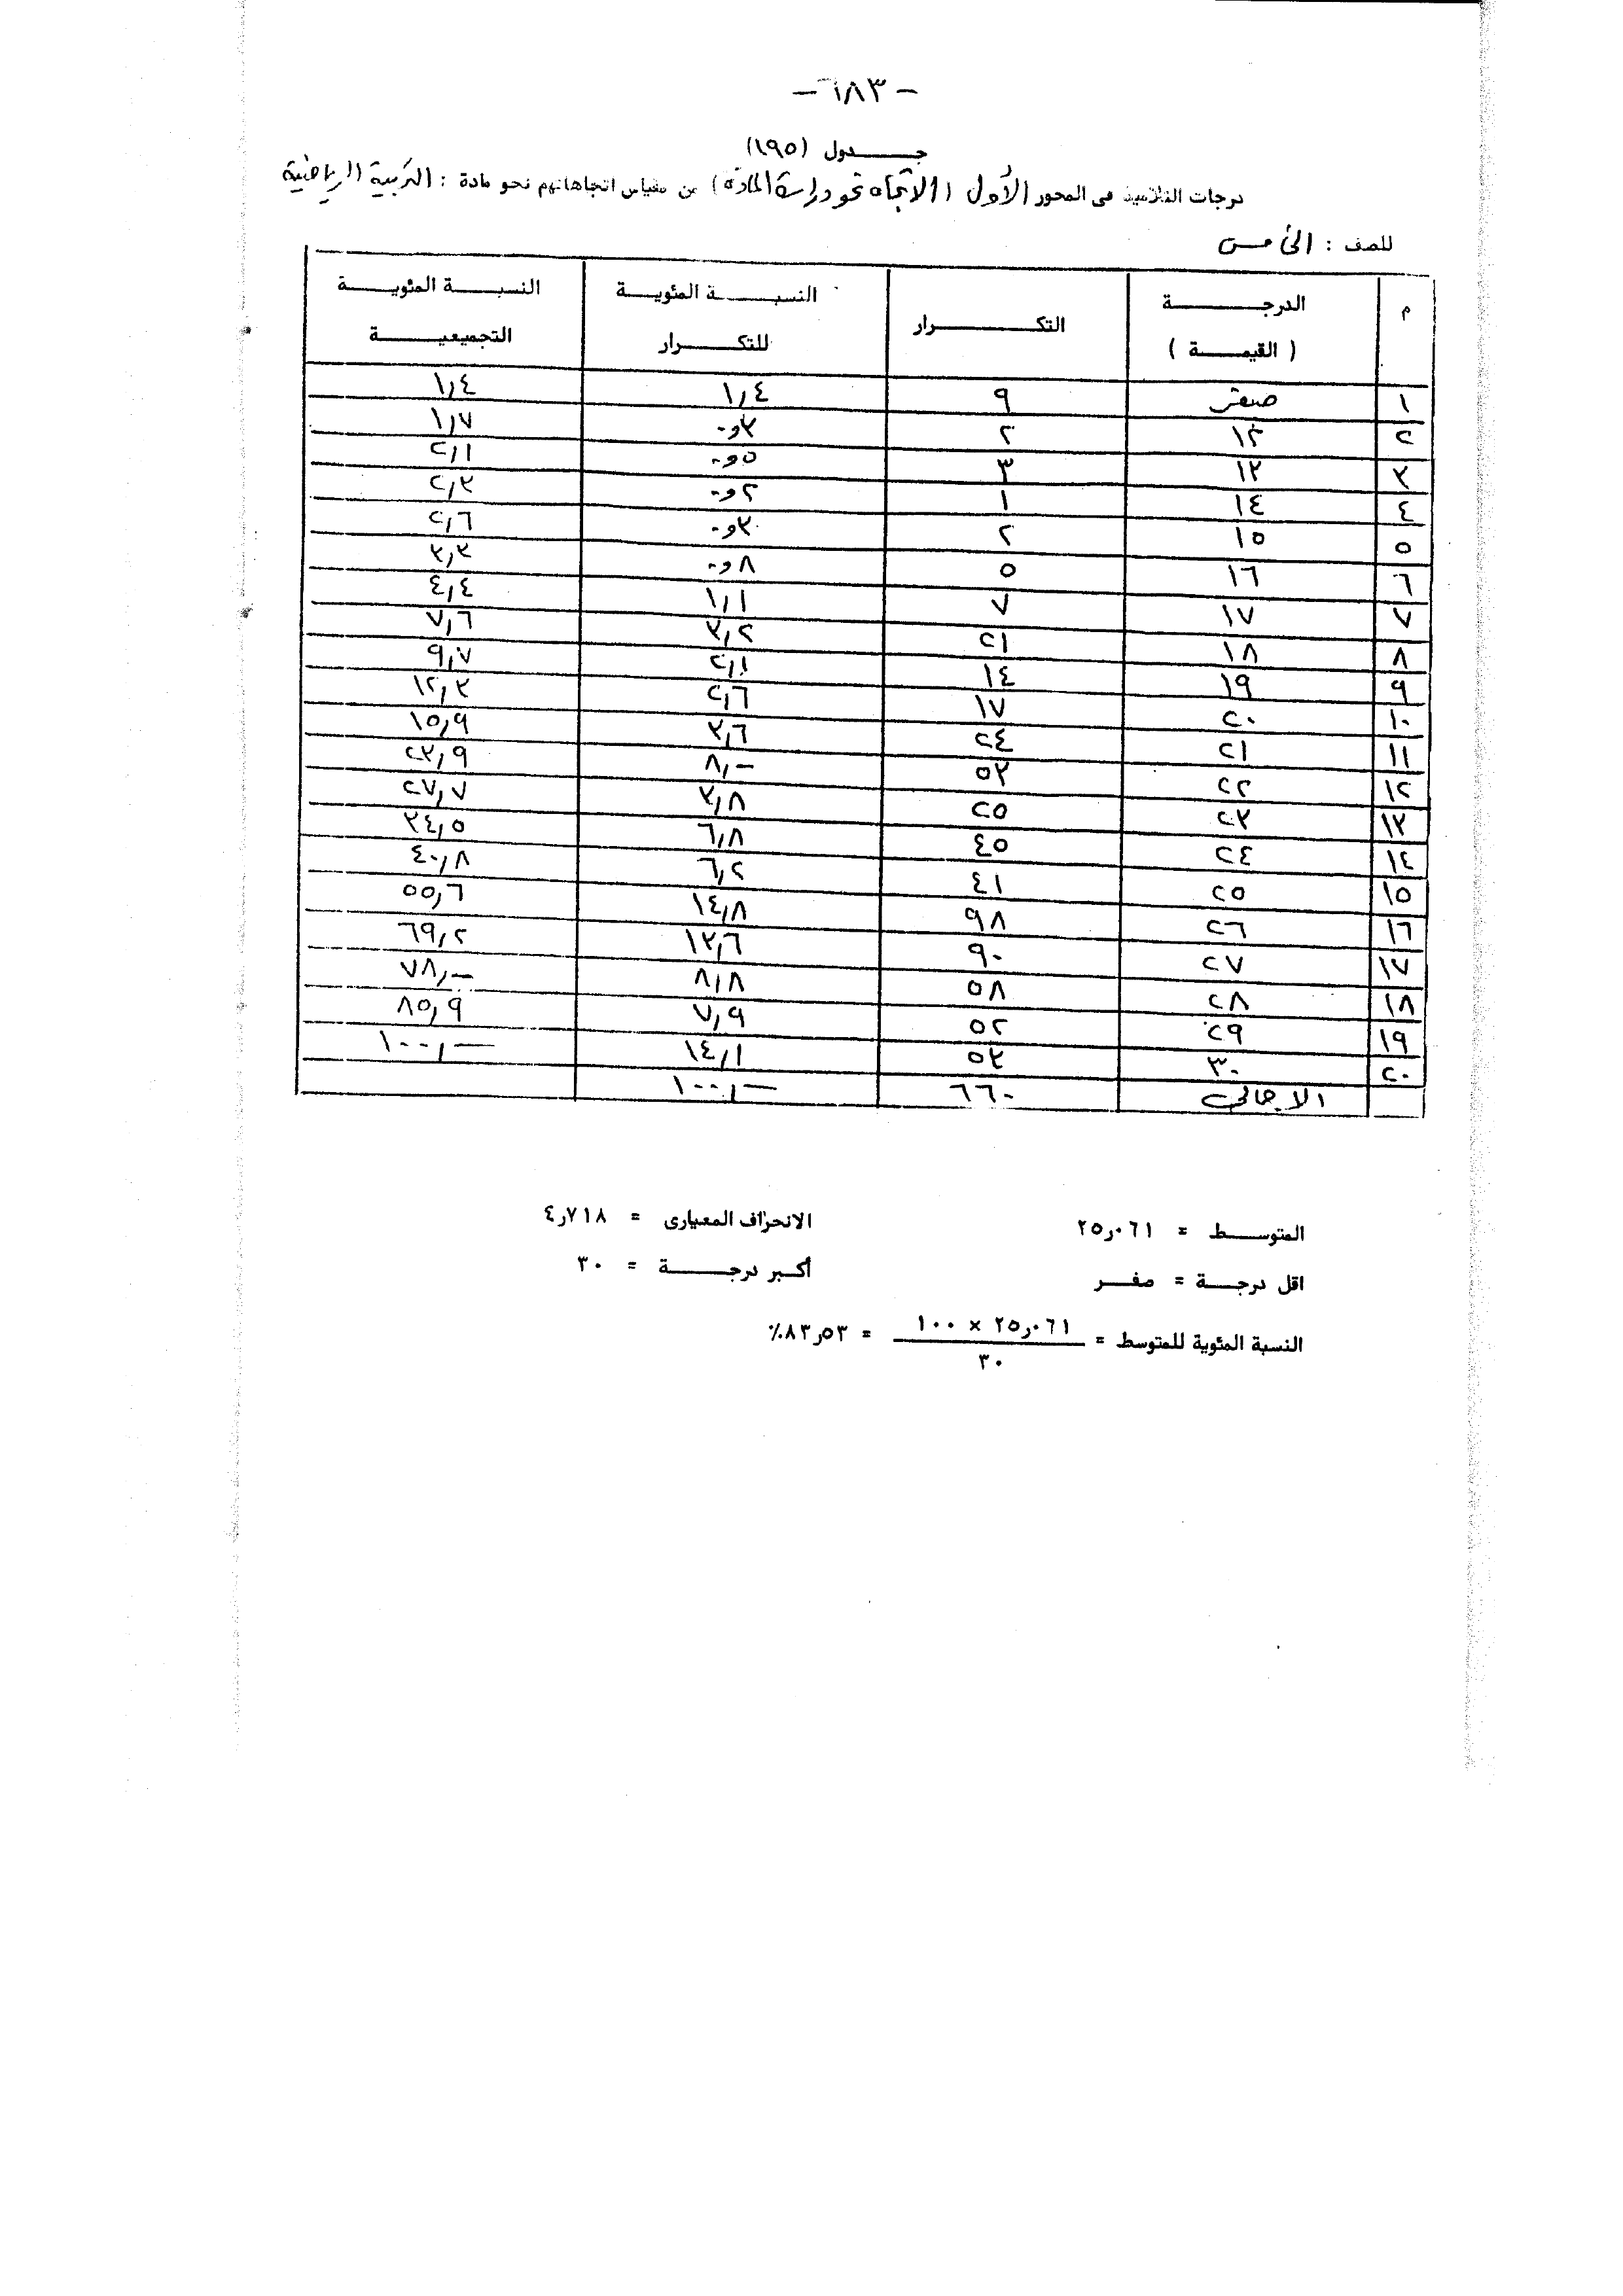 - ٦٨٣ -
جدول (١٩٥)
درجات التلاميذ فى المحور الأول (الاتجاه نحو دراسة المادة) من مقياس اتجاهاتهم نحو مادة : التربية الرياضية
للصف : الخامس
م | الدرجة ( القيمة ) | التكرار | النسبة المئوية للتكرار | النسبة المئوية التجميعية
١ | صفر | ٩ | ١,٤ | ١,٤
٢ | ١٢ | ٢ | ٣و٠ | ١,٧
٣ | ١٣ | ٣ | ٥و٠ | ٢,١
٤ | ١٤ | ١ | ٢و٠ | ٢,٣
٥ | ١٥ | ٢ | ٣و٠ | ٢,٦
٦ | ١٦ | ٥ | ٨و٠ | ٣,٣
٧ | ١٧ | ٧ | ١,١ | ٤,٤
٨ | ١٨ | ٢١ | ٣,٢ | ٧,٦
٩ | ١٩ | ١٤ | ٢,١ | ٩,٧
١٠ | ٢٠ | ١٧ | ٢,٦ | ١٢,٣
١١ | ٢١ | ٢٤ | ٣,٦ | ١٥,٩
١٢ | ٢٢ | ٥٣ | ٨,- | ٢٣,٩
١٣ | ٢٣ | ٢٥ | ٣,٨ | ٢٧,٧
١٤ | ٢٤ | ٤٥ | ٦,٨ | ٣٤,٥
١٥ | ٢٥ | ٤١ | ٦,٢ | ٤٠,٨
١٦ | ٢٦ | ٩٨ | ١٤,٨ | ٥٥,٦
١٧ | ٢٧ | ٩٠ | ١٣,٦ | ٦٩,٢
١٨ | ٢٨ | ٥٨ | ٨,٨ | ٧٨,-
١٩ | ٢٩ | ٥٢ | ٧,٩ | ٨٥,٩
٢٠ | ٣٠ | ٥٣ | ١٤,١ | ١٠٠,-
الاجمالى | ٦٦٠ | ١٠٠,-
المتوسط = ٠٦١ر٢٥ الانحراف المعيارى = ٧١٨ر٤
اقل درجة = صفر أكبر درجة = ٣٠
النسبة المئوية للمتوسط = ٠٦١ر٢٥ × ١٠٠ / ٣٠ = ٥٣ر٨٣٪